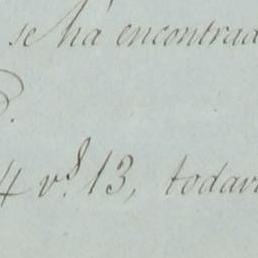 se há encontrad
4 v.s 13, todav